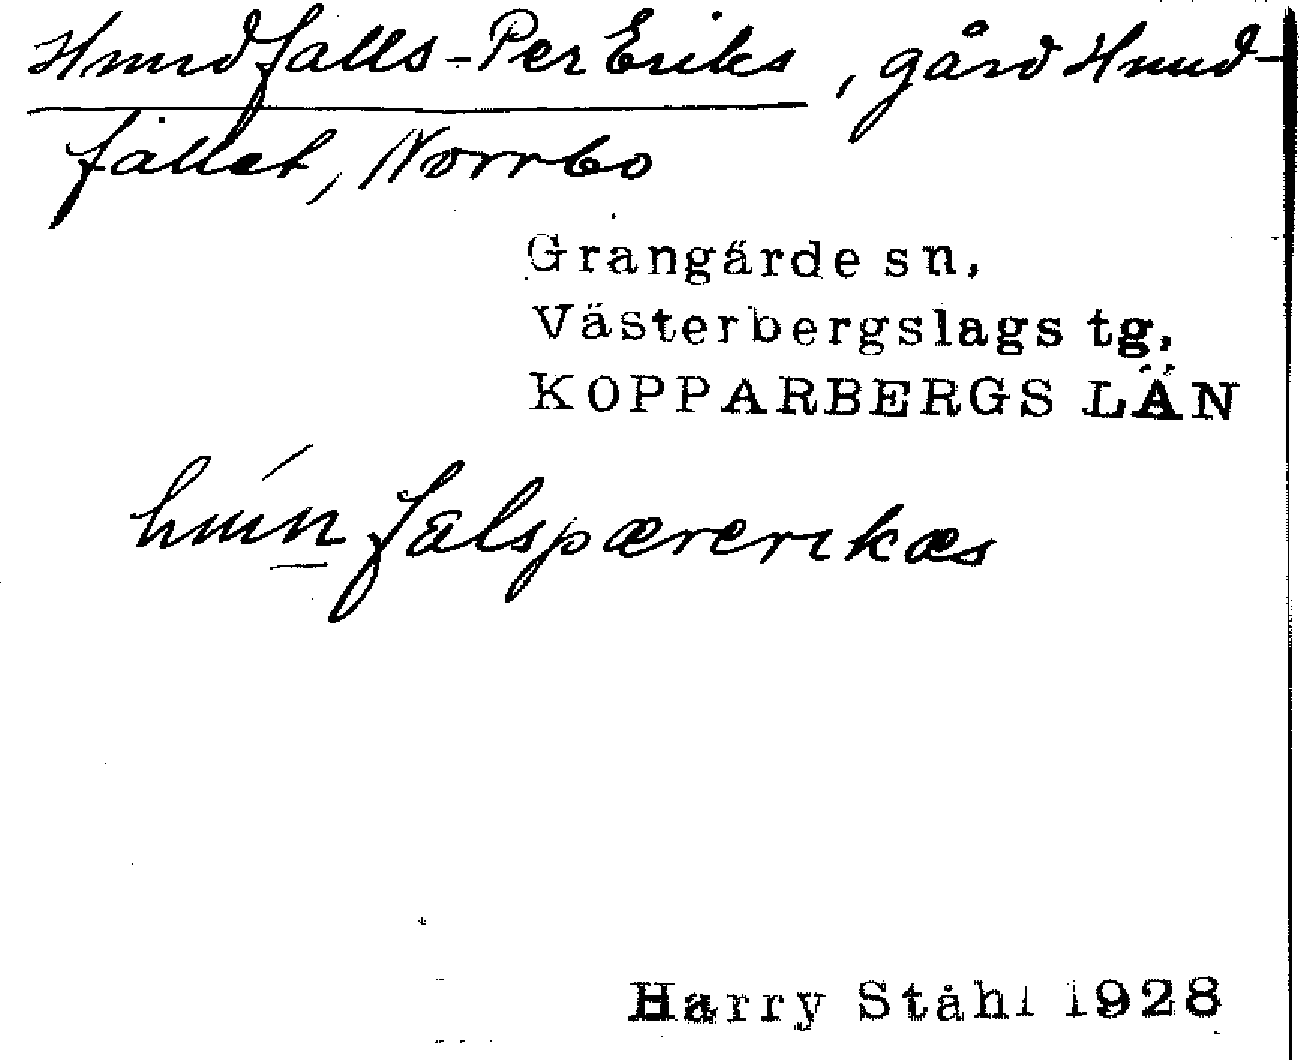 Hundfalls-Per Eriks, gård Hund-
fallet, Norrbo
Grangärde sn,
Västerbergslags tg,
KOPPARBERGS LÄN
hún falspærerikæs
Harry Ståhl 1928